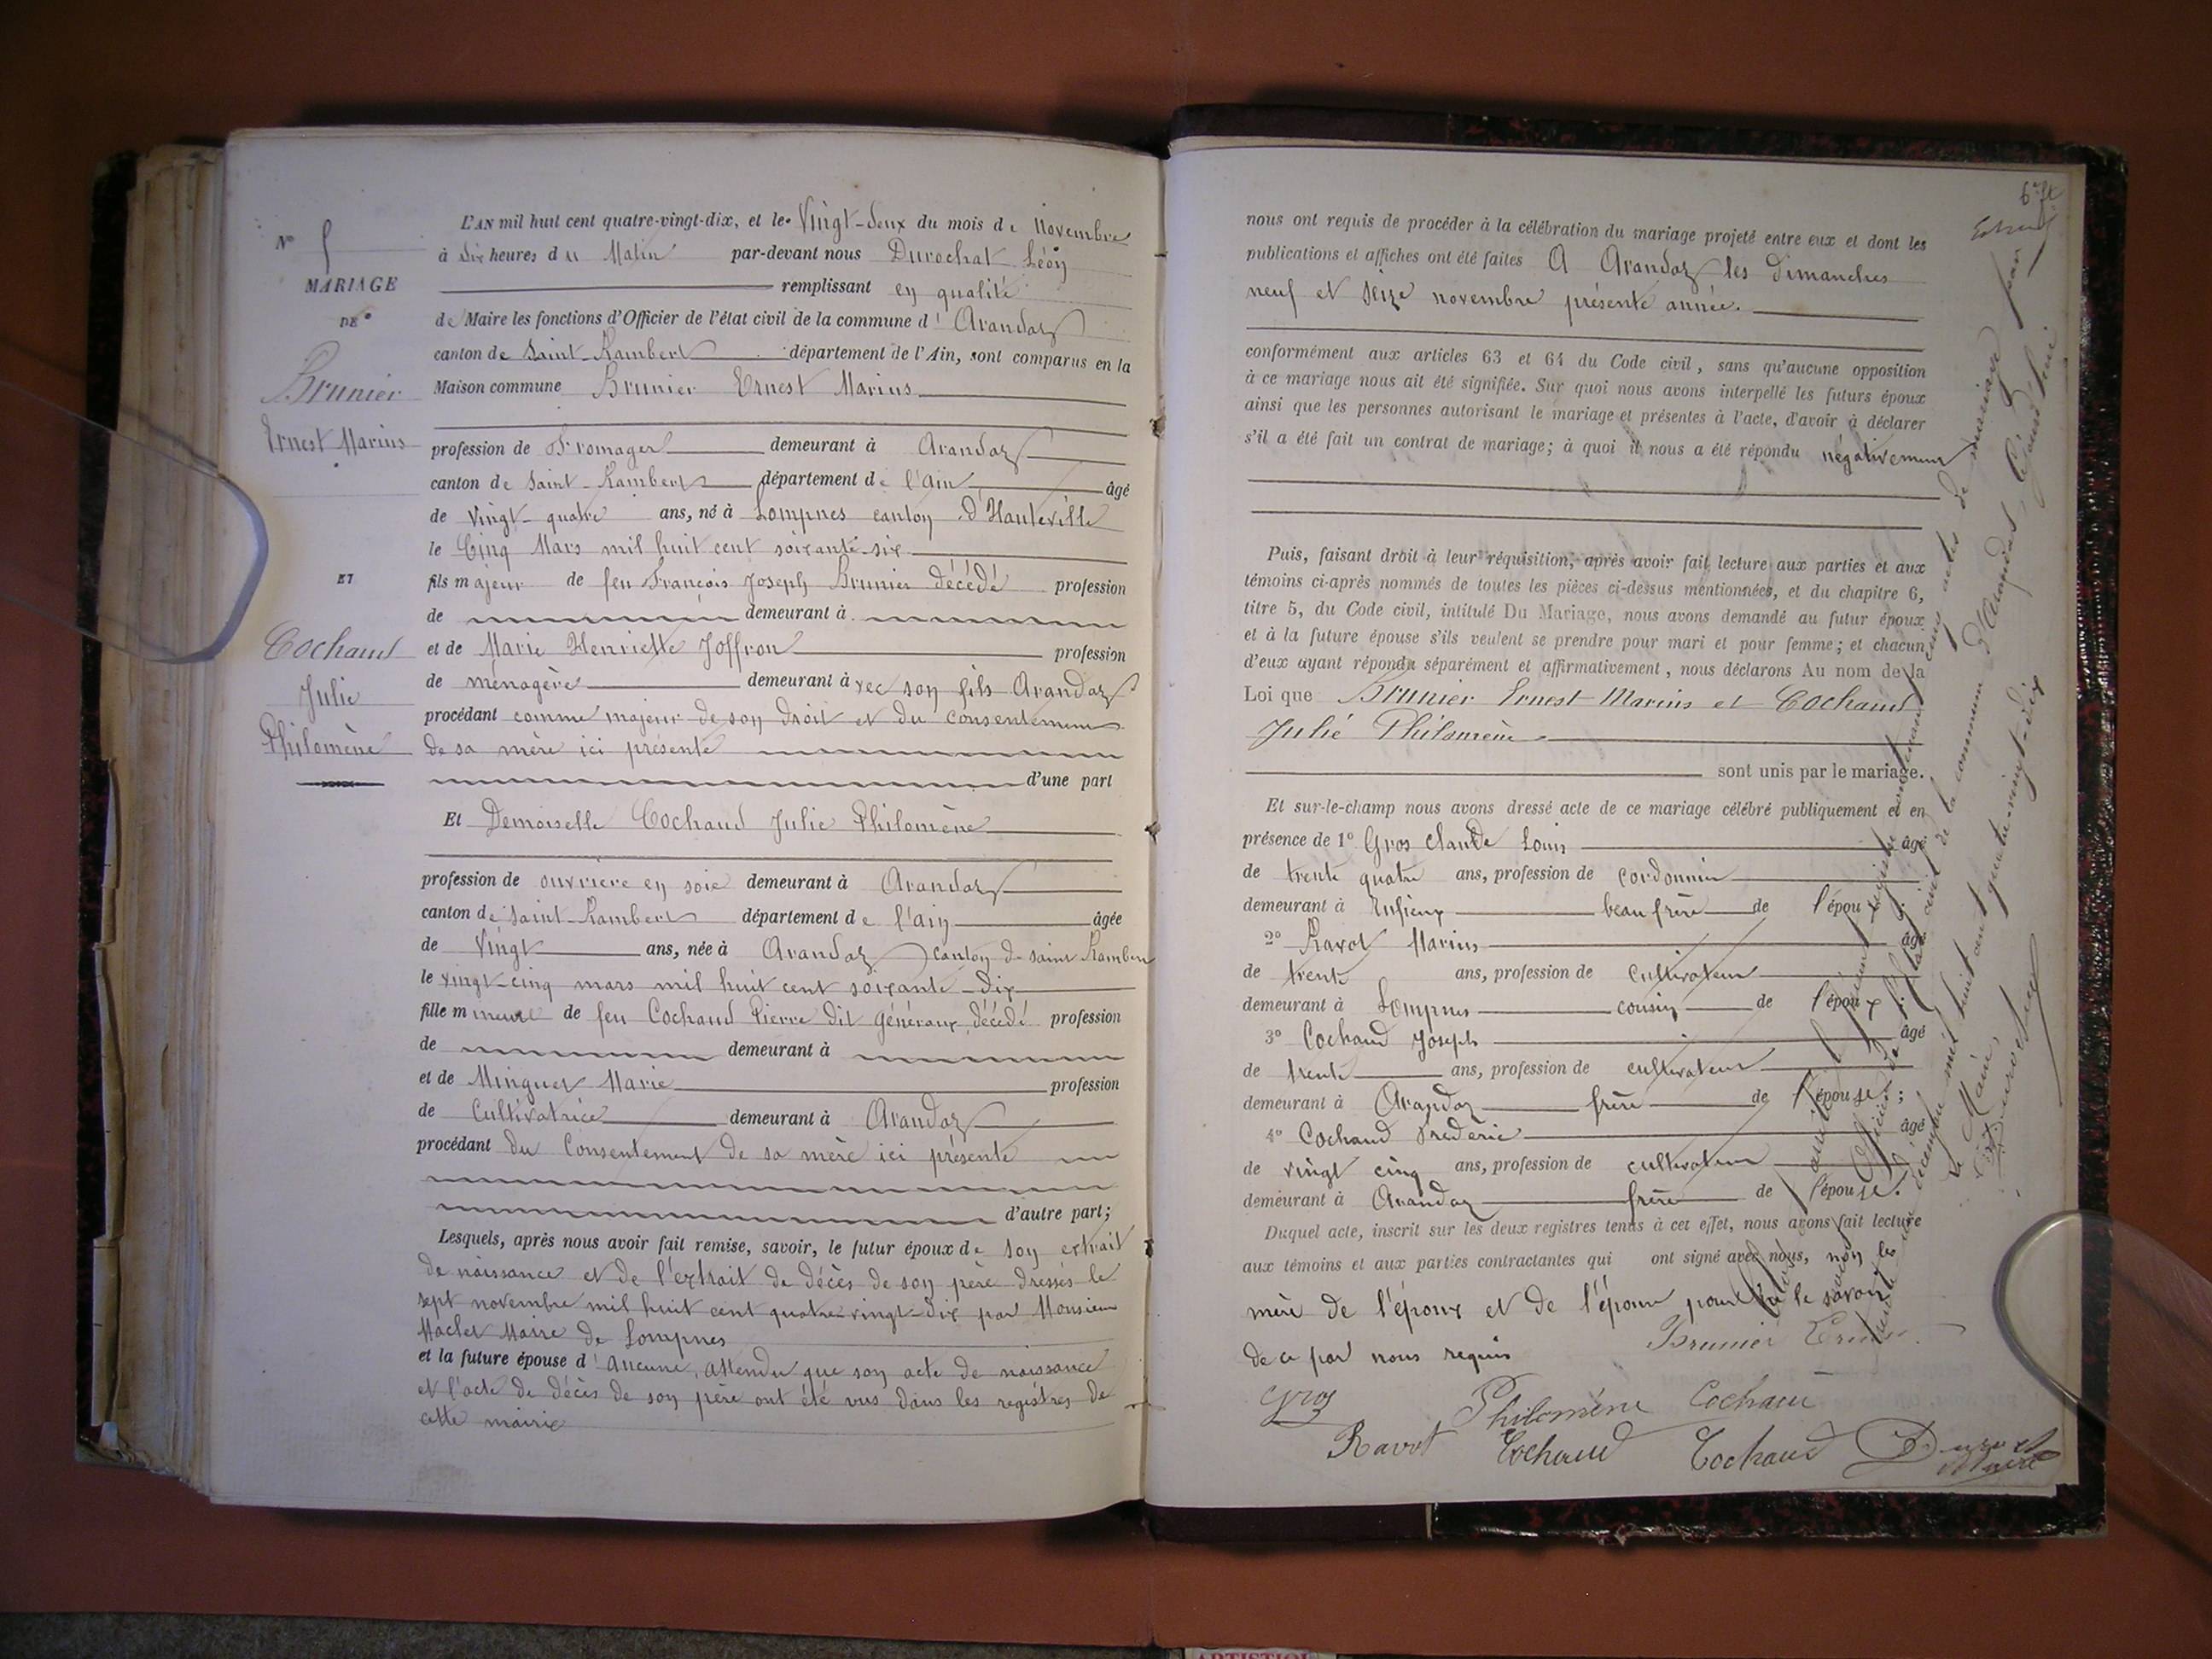 N° 5
MARIAGE
DE
Brunier
Ernest Marius
ET
Cochaud
Julie
Philomène
L'AN mil huit cent quatre-vingt-dix, et le Vingt-deux du mois de Novembre
à dix heures du Matin par-devant nous Durochat Léon
remplissant en qualité
de Maire les fonctions d'Officier de l'état civil de la commune d'Arandaz
canton de Saint-Rambert département de l'Ain, sont comparus en la
Maison commune Brunier Ernest Marius
profession de Fromager demeurant à Arandaz
canton de Saint-Rambert département de l'Ain âgé
de Vingt-quatre ans, né à Lompnes canton d'Hauteville
le Cinq Mars mil huit cent soixante-six
fils majeur de feu François Joseph Brunier décédé profession
de demeurant à
et de Marie Henriette Joffron profession
de ménagère demeurant avec son fils Arandaz
procédant comme majeur de son droit et du consentement
de sa mère ici présente
d'une part
Et Demoiselle Cochaud Julie Philomène
profession de ouvrière en soie demeurant à Arandaz
canton de Saint-Rambert département de l'ain âgée
de Vingt ans, née à Arandaz canton de Saint Rambert
le vingt-cinq mars mil huit cent soixante-dix
fille mineure de feu Cochaud Pierre dit Généraux décédé profession
de demeurant à
et de Minguet Marie profession
de Cultivatrice demeurant à Arandaz
procédant du Consentement de sa mère ici présente
d'autre part;
Lesquels, après nous avoir fait remise, savoir, le futur époux de son extrait
de naissance et de l'extrait de décès de son père dressés le
sept novembre mil huit cent quatre-vingt-dix par Monsieur
Maclet Maire de Lompnes
et la future épouse d'aucune, attendu que son acte de naissance
et l'acte de décès de son père ont été vus dans les registres de
cette mairie
6e ft
nous ont requis de procéder à la célébration du mariage projeté entre eux et dont les
publications et affiches ont été faites A Arandaz les dimanches
neuf et seize novembre présente année.
conformément aux articles 63 et 64 du Code civil, sans qu'aucune opposition
à ce mariage nous ait été signifiée. Sur quoi nous avons interpellé les futurs époux
ainsi que les personnes autorisant le mariage et présentes à l'acte, d'avoir à déclarer
s'il a été fait un contrat de mariage; à quoi il nous a été répondu négativement
Puis, faisant droit à leur réquisition, après avoir fait lecture aux parties et aux
témoins ci-après nommés de toutes les pièces ci-dessus mentionnées, et du chapitre 6,
titre 5, du Code civil, intitulé Du Mariage, nous avons demandé au futur époux
et à la future épouse s'ils veulent se prendre pour mari et pour femme; et chacun
d'eux ayant répondu séparément et affirmativement, nous déclarons Au nom de la
Loi que Brunier Ernest Marius et Cochaud
Julie Philomène
sont unis par le mariage.
Et sur-le-champ nous avons dressé acte de ce mariage célébré publiquement et en
présence de 1° Gros Claude Louis âgé
de trente quatre ans, profession de cordonnier
demeurant à beau frère de l'époux;
2° Ravot Marius âgé
de trente ans, profession de cultivateur
demeurant à Lompnes cousin de l'époux;
3° Cochaud Joseph âgé
de trente ans, profession de cultivateur
demeurant à Arandaz frère de l'épouse;
4° Cochaud Frédéric âgé
de vingt cinq ans, profession de cultivateur
demeurant à Arandaz frère de l'épouse.
Duquel acte, inscrit sur les deux registres tenus à cet effet, nous avons fait lecture
aux témoins et aux parties contractantes qui ont signé avec nous, non les
mère de l'époux et de l'épouse pour ne le savoir
de ce par nous requis
Brunier Ernest
Gros Philomène Cochaud
Ravot Cochaud Cochaud
cinq actes de mariage
de la commune d'Arandaz, aujourd'hui
décembre mil huit cent quatre-vingt-dix
Le Maire,
Durochat